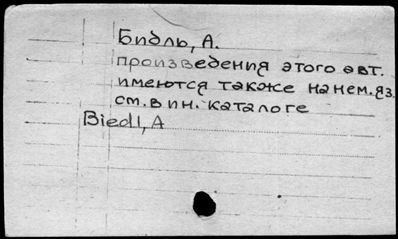 Бидль, А.
произведения этого авт.
имеются также на нем. яз.
см. в ин. каталоге
Biedl, A